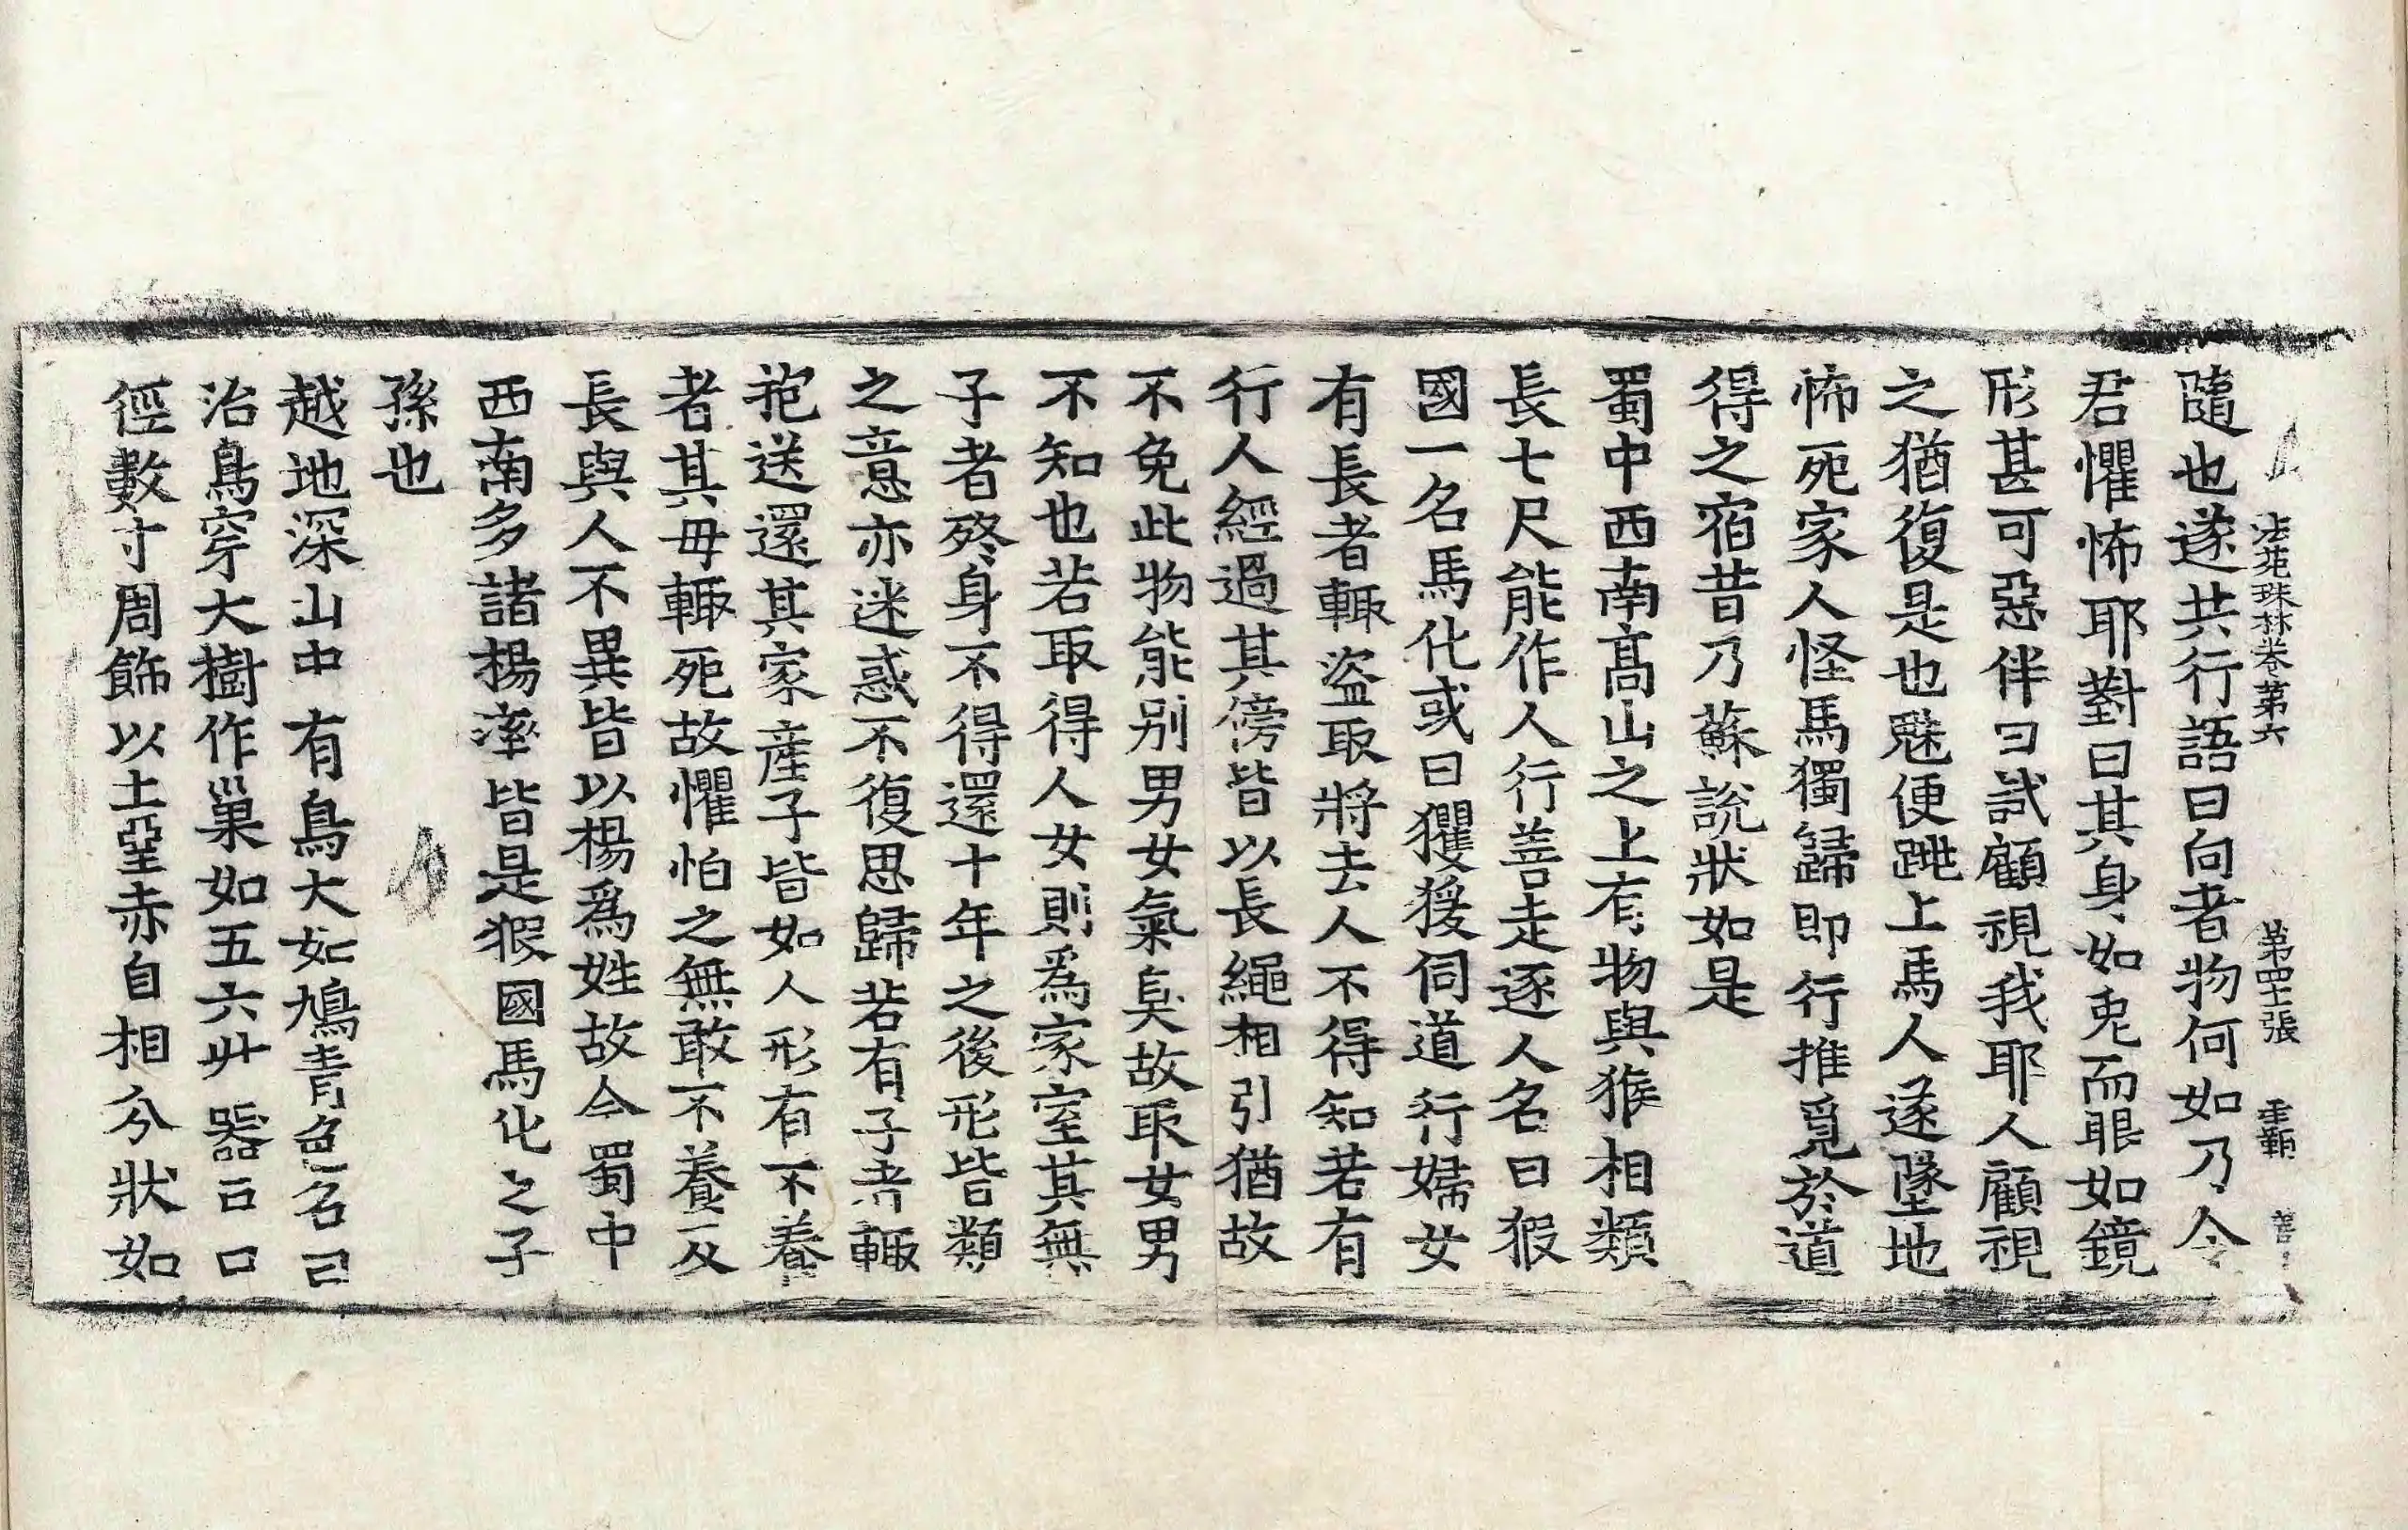 法苑珠林卷第六　第四十張　覇
隨也遂共行語曰向者物何如乃令
君懼怖耶對曰其身如兎而眼如鏡
形甚可惡伴曰試顧視我耶人顧視
之猶復是也魅便跳上馬人遂墜地
怖死家人怪馬獨歸即行推覓於道
得之宿昔乃蘇說狀如是
蜀中西南髙山之上有物與猴相類
長七尺能作人行善走逐人名曰猳
國一名馬化或曰玃猨伺道行婦女
有長者輙盜取將去人不得知若有
行人經過其傍皆以長繩相引猶故
不免此物能別男女氣臭故取女男
不知也若取得人女則爲家室其無
子者終身不得還十年之後形皆類
之意亦迷惑不復思歸若有子者輙
抱送還其家産子皆如人形有不養
者其母輙死故懼怕之無敢不養及
長與人不異皆以楊爲姓故今蜀中
西南多諸楊率皆是猳國馬化之子
孫也
越地深山中有鳥大如鳩青色名曰
治鳥穿大樹作巢如五六升器口
徑數寸周飾以土堊赤白相分狀如